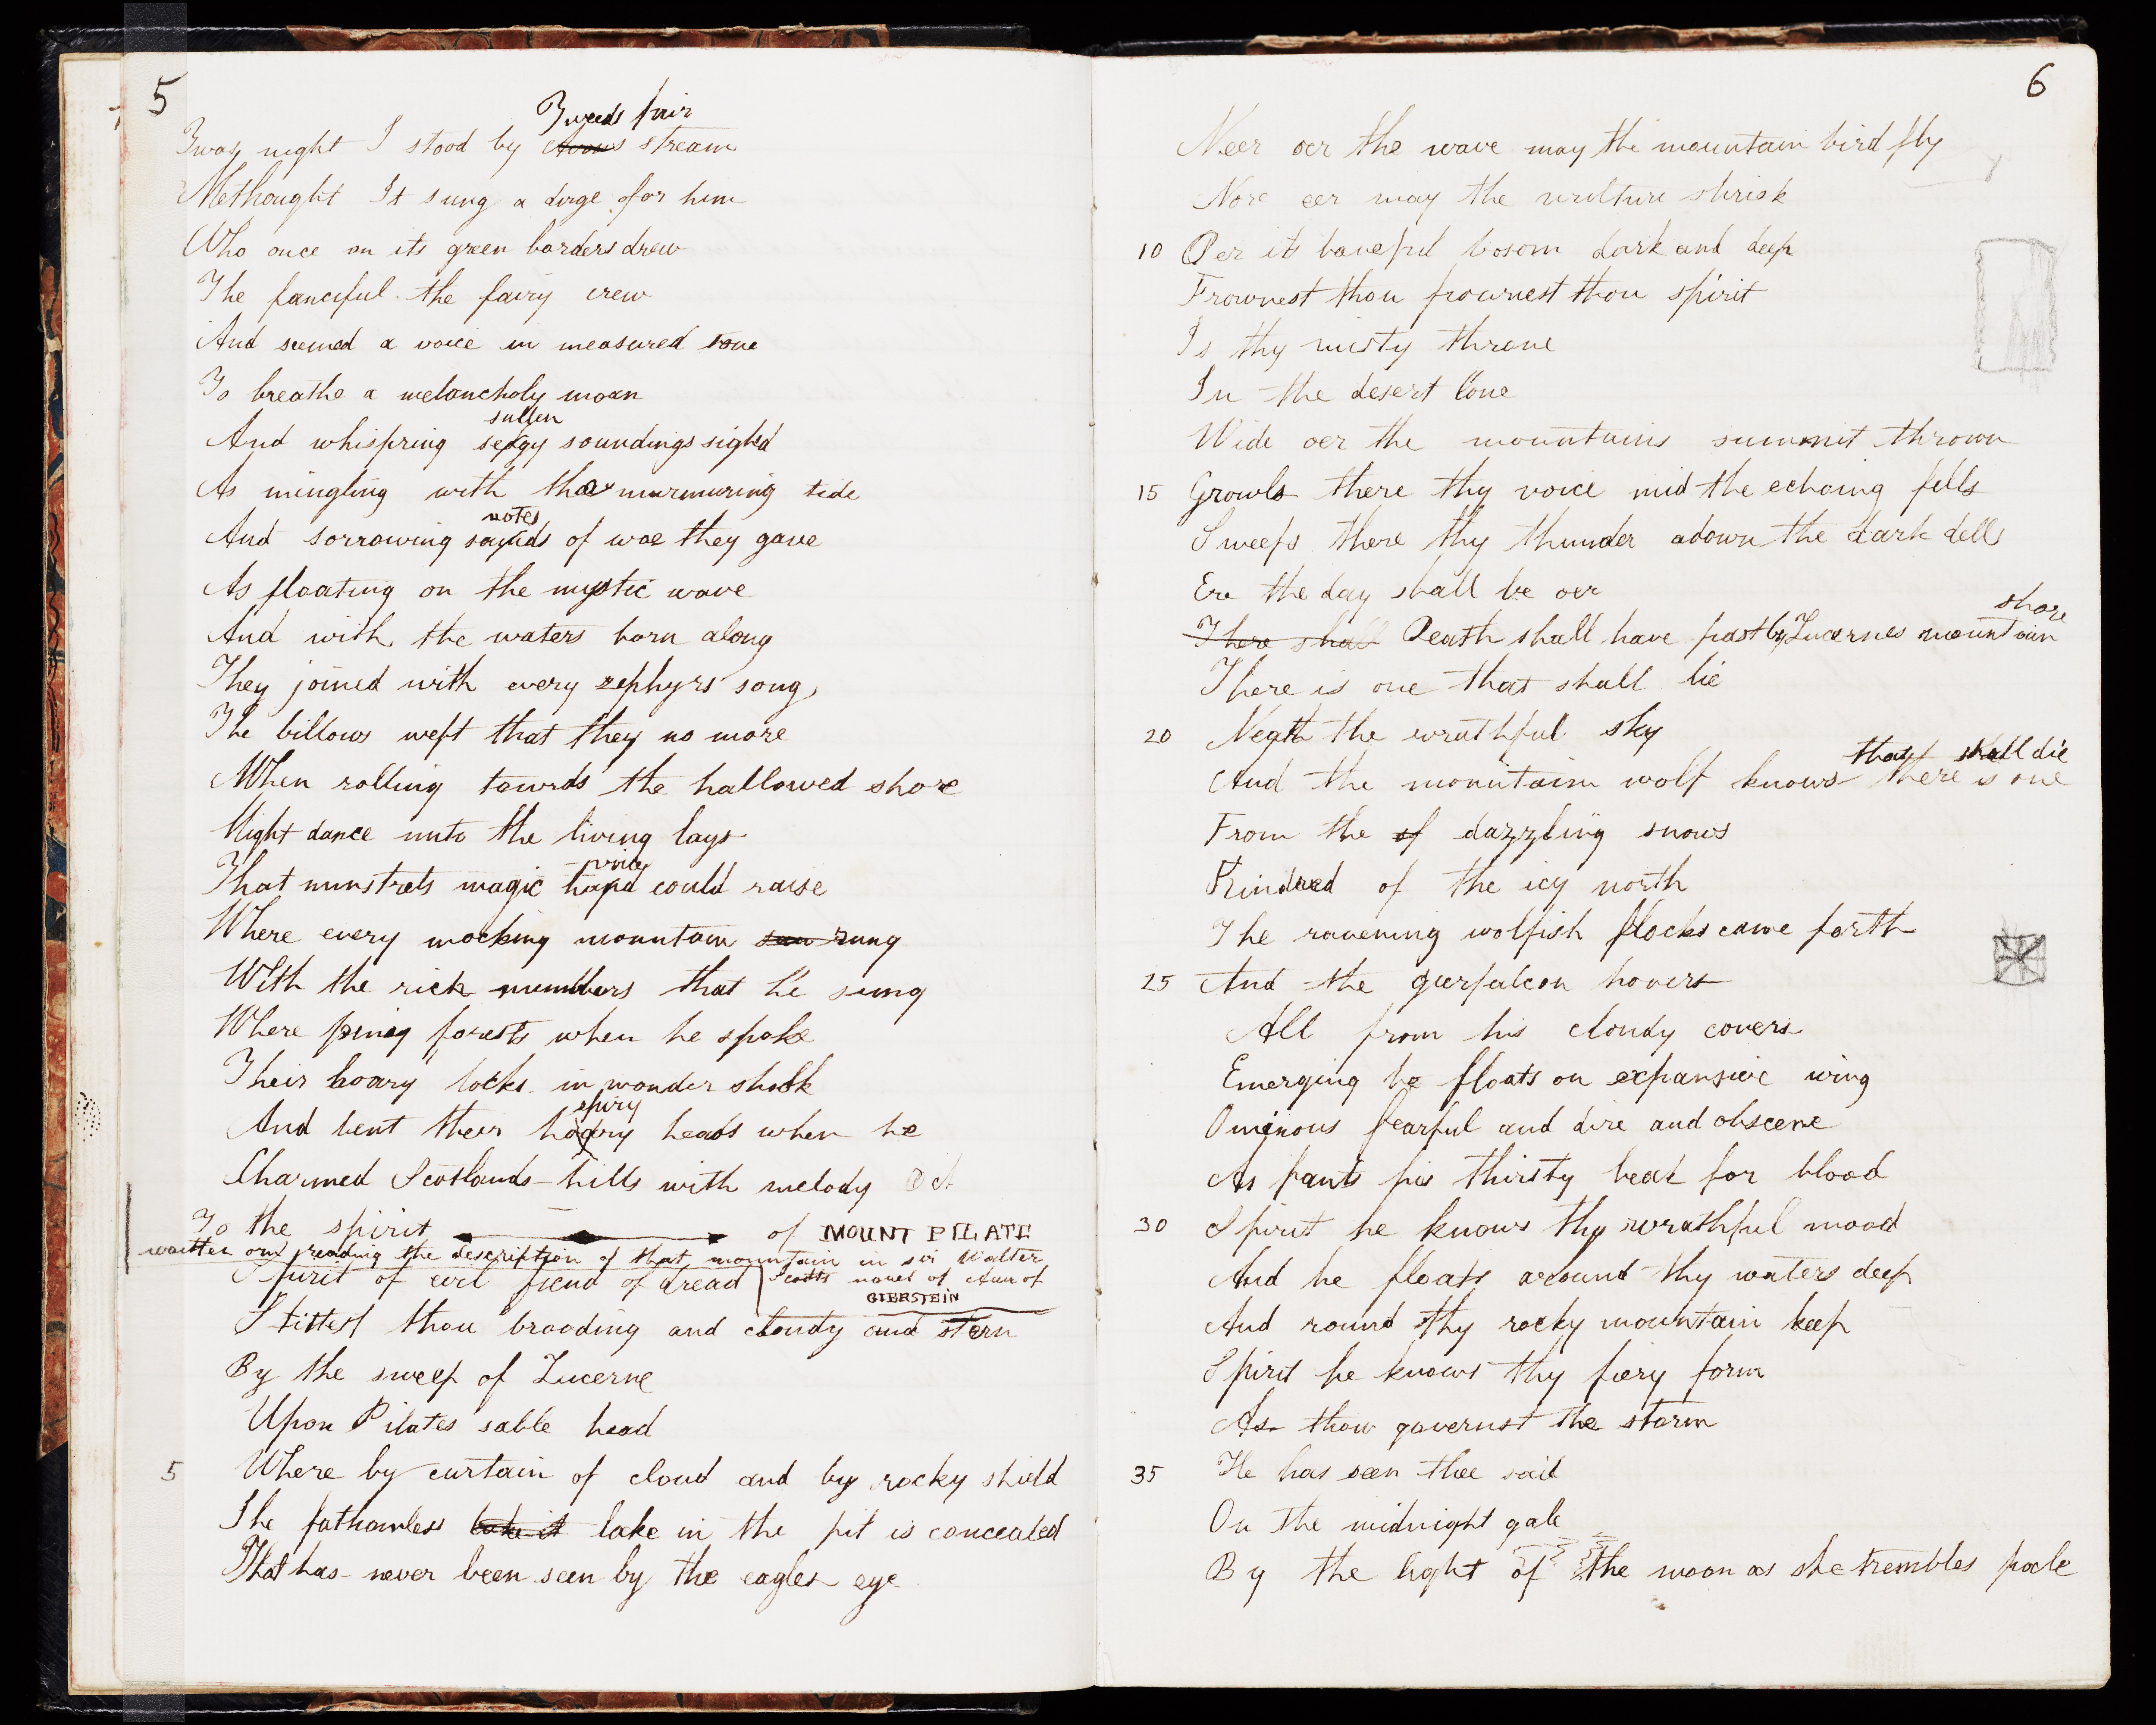 5
Tweeds fair
Twas night I stood by Avons stream
Methought It sung a dirge for him
Who once on its green borders drew
The fanciful the fairy crew
And seemed a voice in measured tone
To breathe a melancholy moan
sullen
And whispring sedgy soundings sighd
As mingling with the murmuring tide
notes
And sorrowing sounds of woe they gave
As floating on the mystic wave
And with the waters born along
They joined with every zephyrs song
The billows wept that they no more
When rolling towrds the hallowed shore
Might dance unto the living lays
voice
That minstrels magic hand could raise
Where every mocking mountain rung
With the rich numbers that he sung
Where piney forests when he spoke
Their hoary locks in wonder shook
spiry
And bent their hoary heads when he
Charmed Scotlands hills with melody Oct
To the spirit of MOUNT PILATE
written on reading the description of that mountain in sir Walter
Scotts novel of Ann of
GIERSTEIN
Spirit of evil fiend of dread
Sittest thou brooding and cloudy and stern
By the sweep of Lucerne
Upon Pilates sable head
5 Where by curtain of cloud and by rocky shield
The fathomless lake it lake in the pit is concealed
That has never been seen by the eagles eye
6
Neer oer the wave may the mountain bird fly
Nore eer may the vulture shriek
10 Oer its baneful bosom dark and deep
Frownest thou frownest thou spirit
Is thy misty throne
In the desert lone
Wide oer the mountains summit thrown
15 Growls there thy voice mid the echoing fells
Sweeps there thy thunder adown the dark dells
Ere the day shall be oer
shore
There shall Death shall have past by Lucernes mountain
There is one that shall lie
20 Neath the wrathful sky
that shall die
And the mountain wolf knows there is one
From the of dazzling snows
Kindred of the icy north
The ravening wolfish flocks come forth
25 And the gierfalcon hovers
All from his cloudy covers
Emerging he floats on expansive wing
Ominous fearful and dire and obscene
As pants his thirsty beak for blood
30 Spirit he knows thy wrathful mood
And he floats around thy waters deep
And round thy rocky mountain keep
Spirit he knows thy fiery form
As thou governst the storm
35 He has seen thee sail
On the midnight gale
By the light of the moon as she trembles pale